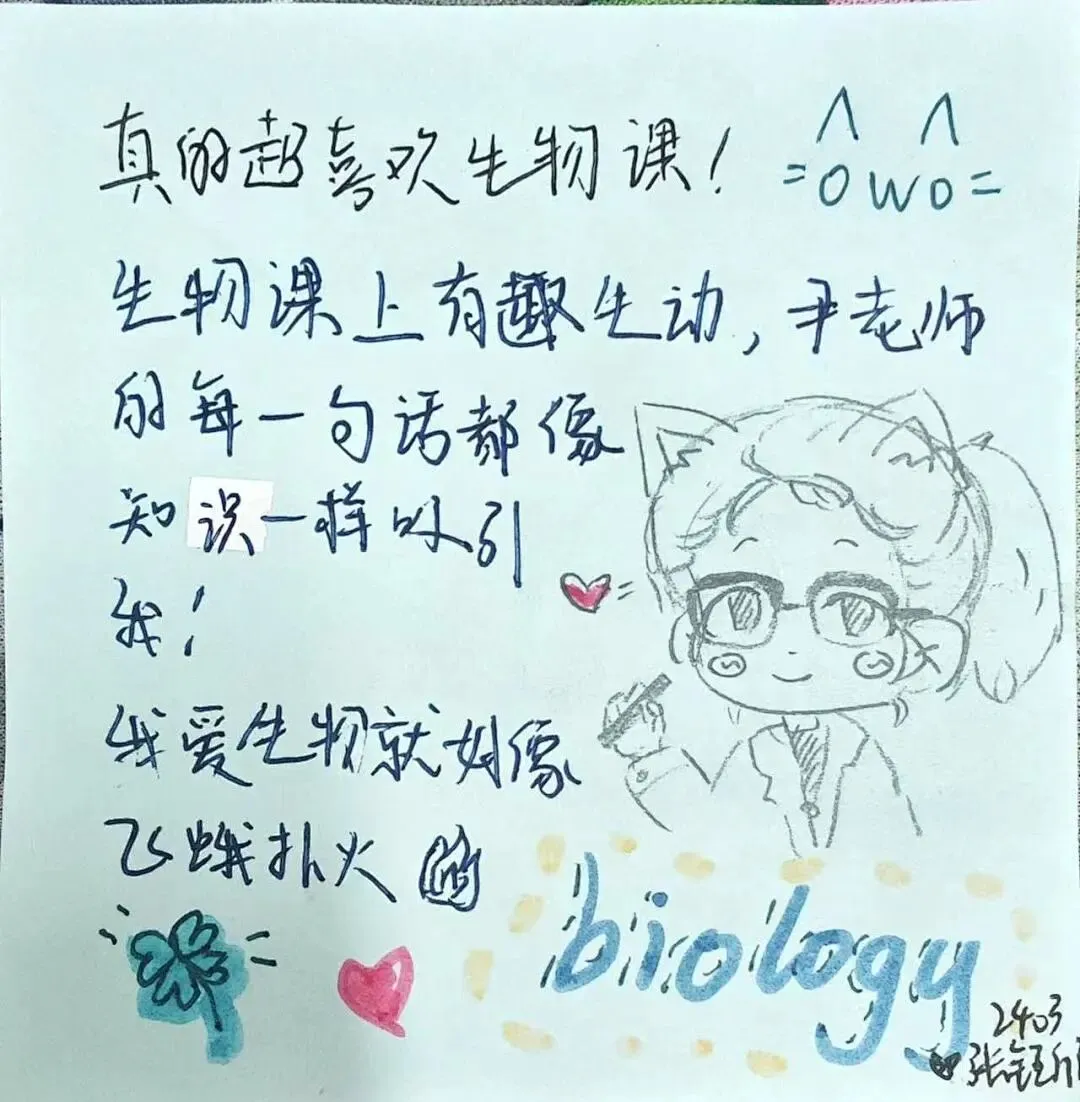 真的超喜欢生物课！
= O W O =
生物课上有趣生动，尹老师
的每一句话都像
知识一样吸引
我！
我爱生物就如像
飞蛾扑火
biology
2403
张钰